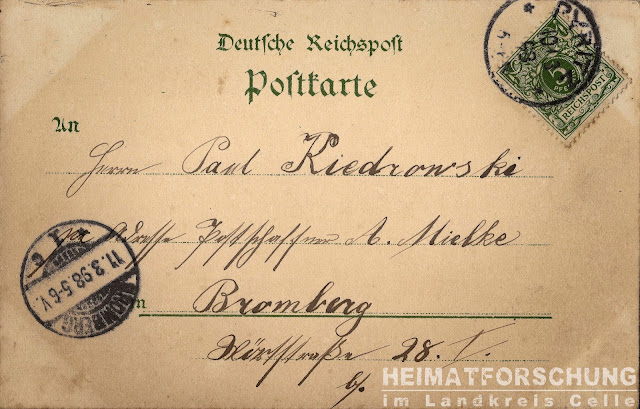 Deutsche Reichspost
Postkarte
An
Herrn Paul Kiedrowski
Adresse Postschaffner A. Mielke
Bromberg
28. I.
REICHSPOST
5
BROMBERG
11.3.98.5-6V.
HEIMATFORSCHUNG
im Landkreis Celle